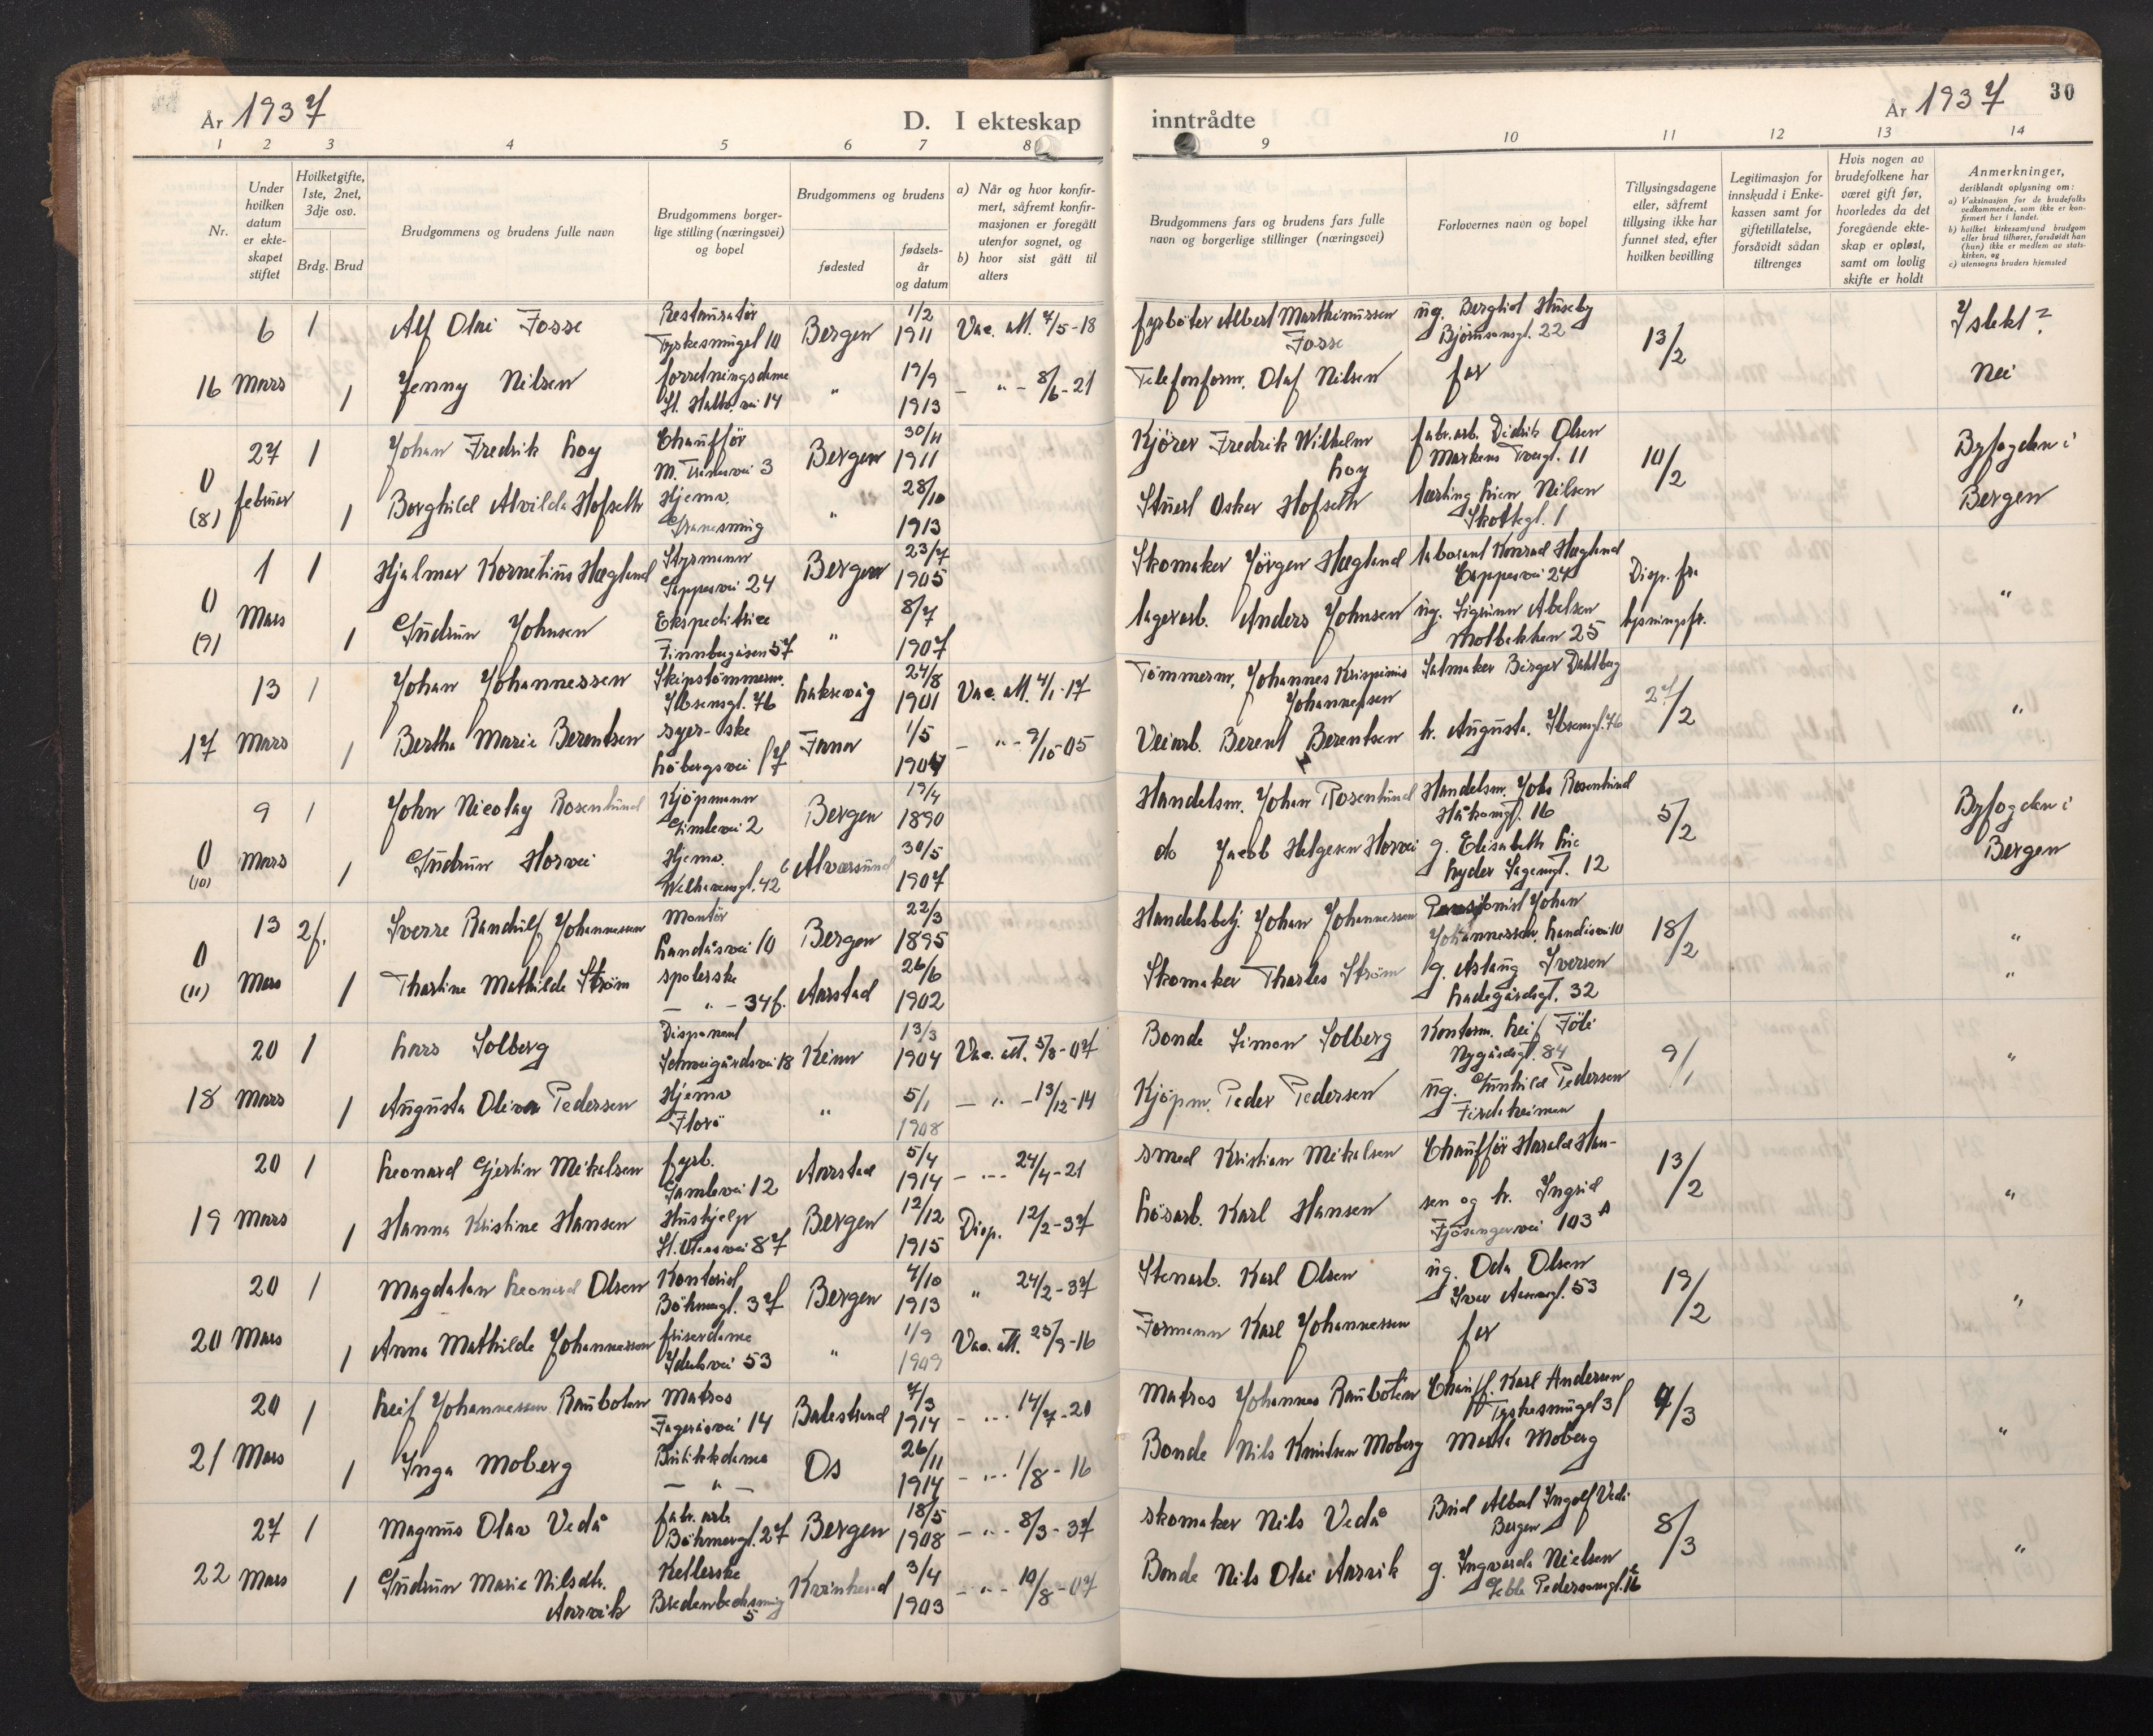 År 1937
D. I ekteskap
1 2 3 4 5 6 7 8
Nr.
Under
hvilken
datum
er ekte-
skapet
stiftet
Hvilketgifte,
1ste, 2net,
3dje osv.
Brdg. Brud
Brudgommens og brudens fulle navn
Brudgommens borger-
lige stilling (næringsvei)
og bopel
Brudgommens og brudens
fødested
fødsels-
år
og datum
a) Når og hvor konfir-
mert, såfremt konfir-
masjonen er foregått
utenfor sognet, og
b) hvor sist gått til
alters
6 1 Alf Olai Fosse Restauratør Bergen 1/2 Vac. att. 7/5-18
Tyskesmuget 10 1911
16 Mars 1 Jenny Nilsen forretningsdame " 19/9 - " - 8/6-21
St. Halv. vei 14 1913
27 1 Johan Fredrik Loy Chauffør Bergen 30/11
M. Trines vei 3 1911
0 februar 1 Borghild Alvilde Hofseth Hjemv. " 28/10
(8) 1913
1 1 Hjalmar Kornelius Hagland Styrmann Bergen 23/7
Cappesvei 24 1905
0 Mars 1 Gudrun Johnsen Ekspeditrice " 8/7
(9) Finnbergåsen 57 1907
13 1 Johan Johannessen Skipstømmerm. Laksevåg 24/8 Vac. att. 4/1-17
Ibsensgt. 76 1901
17 Mars 1 Bertha Marie Berentsen syerske Fana 1/5 - " - 9/10-05
Løbergsvei 1904
9 1 John Nicolay Rosenlund Kjøpmann Bergen 19/4
Gimlevei 2 1890
0 Mars 1 Gudrun Horvei Hjemv. Alværsund 30/5
(10) Welhavensgt. 42 1907
13 2f. Sverre Randulf Johannessen Montør Bergen 22/3
Landåsvei 10 1895
0 Mars 1 Tharline Mathilde Strøm spolerske Aarstad 26/6
(11) - " - 34f. 1902
20 1 Lars Solberg Disponent Kinn 13/3 Vac. att. 5/8-07
Schweigårdsvei 18 1904
18 Mars 1 Augusta Oliva Pedersen Hjemv " 5/1 - " - 13/12-14
Florø 1908
20 1 Leonard Gjertin Mikalsen fyrb. Aarstad 5/4 - " - 24/4-21
Gamlevei 12 1914
19 Mars 1 Hanna Kristine Hansen Hushjelp Bergen 12/12 Disp. 12/2-37
St. Olavsvei 87 1915
20 1 Magdalon Leonard Olsen Kontorist Bergen 4/10 " 24/2-37
Bøhmergt. 37 1913
20 Mars 1 Anna Mathilde Johannessen friserdame " 1/9 Vac. att. 25/9-16
Ydulsvei 53 1909
20 1 Leif Johannessen Raubotn Matros Balestrand 7/3 - " - 14/7-20
Fageråsvei 14 1914
21 Mars 1 Inga Moberg Butikkdame Os 26/11 - " - 1/8-16
- " - 1914
27 1 Magnus Olav Vedå fabr. arb. Bergen 18/5 - " - 8/3-37
Bøhmergt. 27 1908
22 Mars 1 Gudrun Marie Nilsdtr. Ketlerske Kvinherad 3/4 - " - 10/8-07
Aarvik Bredenbecksmug 5 1903
inntrådte
År 1937
30
9 10 11 12 13 14
Brudgommens fars og brudens fars fulle
navn og borgerlige stillinger (næringsvei)
Forlovernes navn og bopel
Tillysingsdagene
eller, såfremt
tillysing ikke har
funnet sted, efter
hvilken bevilling
Legitimasjon for
innskudd i Enke-
kassen samt for
giftetillatelse,
forsåvidt sådan
tiltrenges
Hvis nogen av
brudefolkene har
været gift før,
hvorledes da det
foregående ekte-
skap er opløst,
samt om lovlig
skifte er holdt
Anmerkninger,
deriblandt oplysning om:
a) Vaksinasjon for de brudefolks
vedkommende, som ikke er kon-
firmert her i landet.
b) hvilket kirkesamfund brudgom
eller brud tilhører, forsåvidt han
(hun) ikke er medlem av stats-
kirken, og
c) utensogns bruders hjemsted
fyrbøter Albert Marthinussen ug. Bergliot Huseby 13/2 I slekt?
Fosse Bjørnsonsgt. 22
Telefonform. Olaf Nilsen far Nei
Kjører Fredrik Wilhelm fabr.arb. Didrik Olsen 10/2 Byfogden i
Loy Markens Tvergt. 11
Stuert Oskar Hofseth Nilsen Bergen
Skottegt. 1
Skomaker Jørgen Hagland Konrad Hagland Disp. fra
Cappesvei 24
lagerarb. Anders Johnsen ug. Sigrunn Abelsen lysningsfr. "
Molbakken 25
Tømmerm. Johannes Krispinus Salmaker Birger Dahlberg 27/2
Johannessen
Veiarb. Berent Berentsen h. Augusta. Ibsensgt. 76 "
Handelsm. Johan Rosenlund Handelsm. Johs Rosenlund 5/2 Byfogden i
Håkonsgt. 16
do Jacob Helgesen Horvei g. Elisabeth Bergen
Lyder Sagensgt. 12
Handelsbetj. Johan Johannessen Pensjonist Johan 18/2 "
Johannessen, Landåsvei 10
Skomaker Tharles Strøm g. Aslaug Iversen "
Ladegårdsgt. 32
Bonde Simon Solberg Kontorm. Leif 9/1 "
Nygårdsgt. 84
Kjøpm. Peder Pedersen ug. Gunhild Pedersen
Firdaheimen
smed Kristian Mikalsen Chauffør Harald Han- 13/2
Løsarb. Karl Hansen sen og h. Ingrid "
Fjøsangervei 103 A
Stenarb. Karl Olsen ug. Oda Olsen 19/2 "
Iver Aasensgt. 53
Formann Karl Johannessen far
Matros Johannes Raubotn Chauff. Karl Andersen 4/3
Tyskesmuget 3
Bonde Nils Knutsen Moberg Marta Moberg "
skomaker Nils Vedå Bud Albert Ingolf Vedå 8/3
Bergen
Bonde Nils Olai Aarvik g. Ingvarda Nielsen "
Geble Pedersensgt. 16